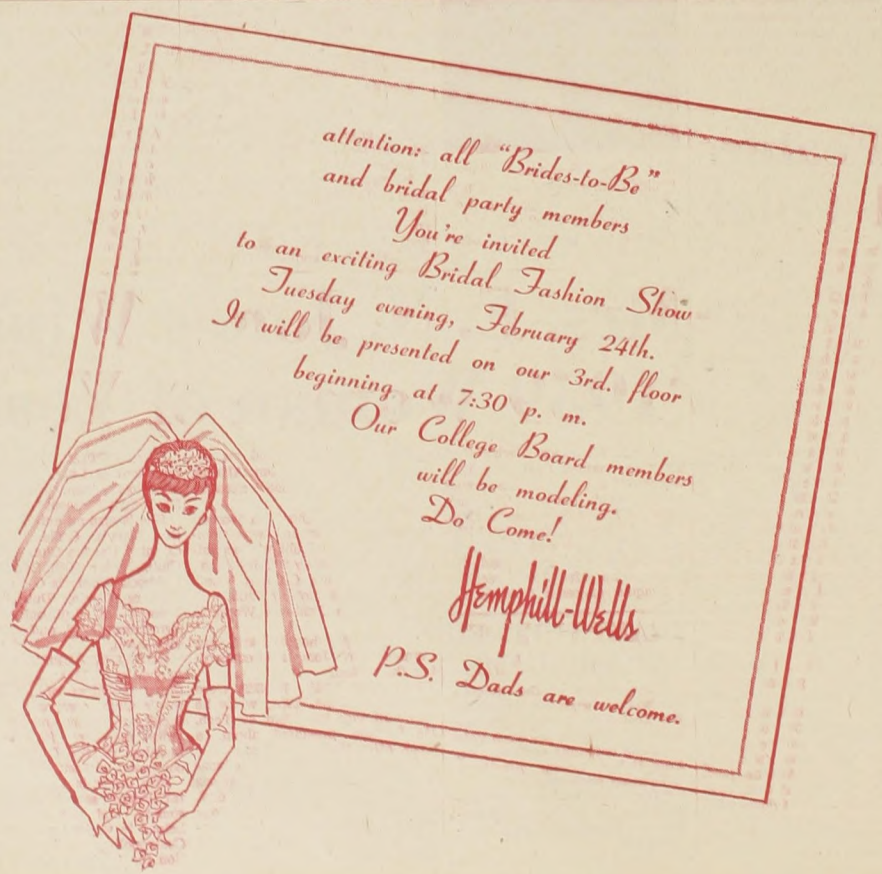 attention: all "Brides-to-Be"
and bridal party members
You're invited
to an exciting Bridal Fashion Show
Tuesday evening, February 24th.
It will be presented on our 3rd. floor
beginning at 7:30 p. m.
Our College Board members
will be modeling.
Do Come!
Hemphill-Wells
P.S. Dads are welcome.